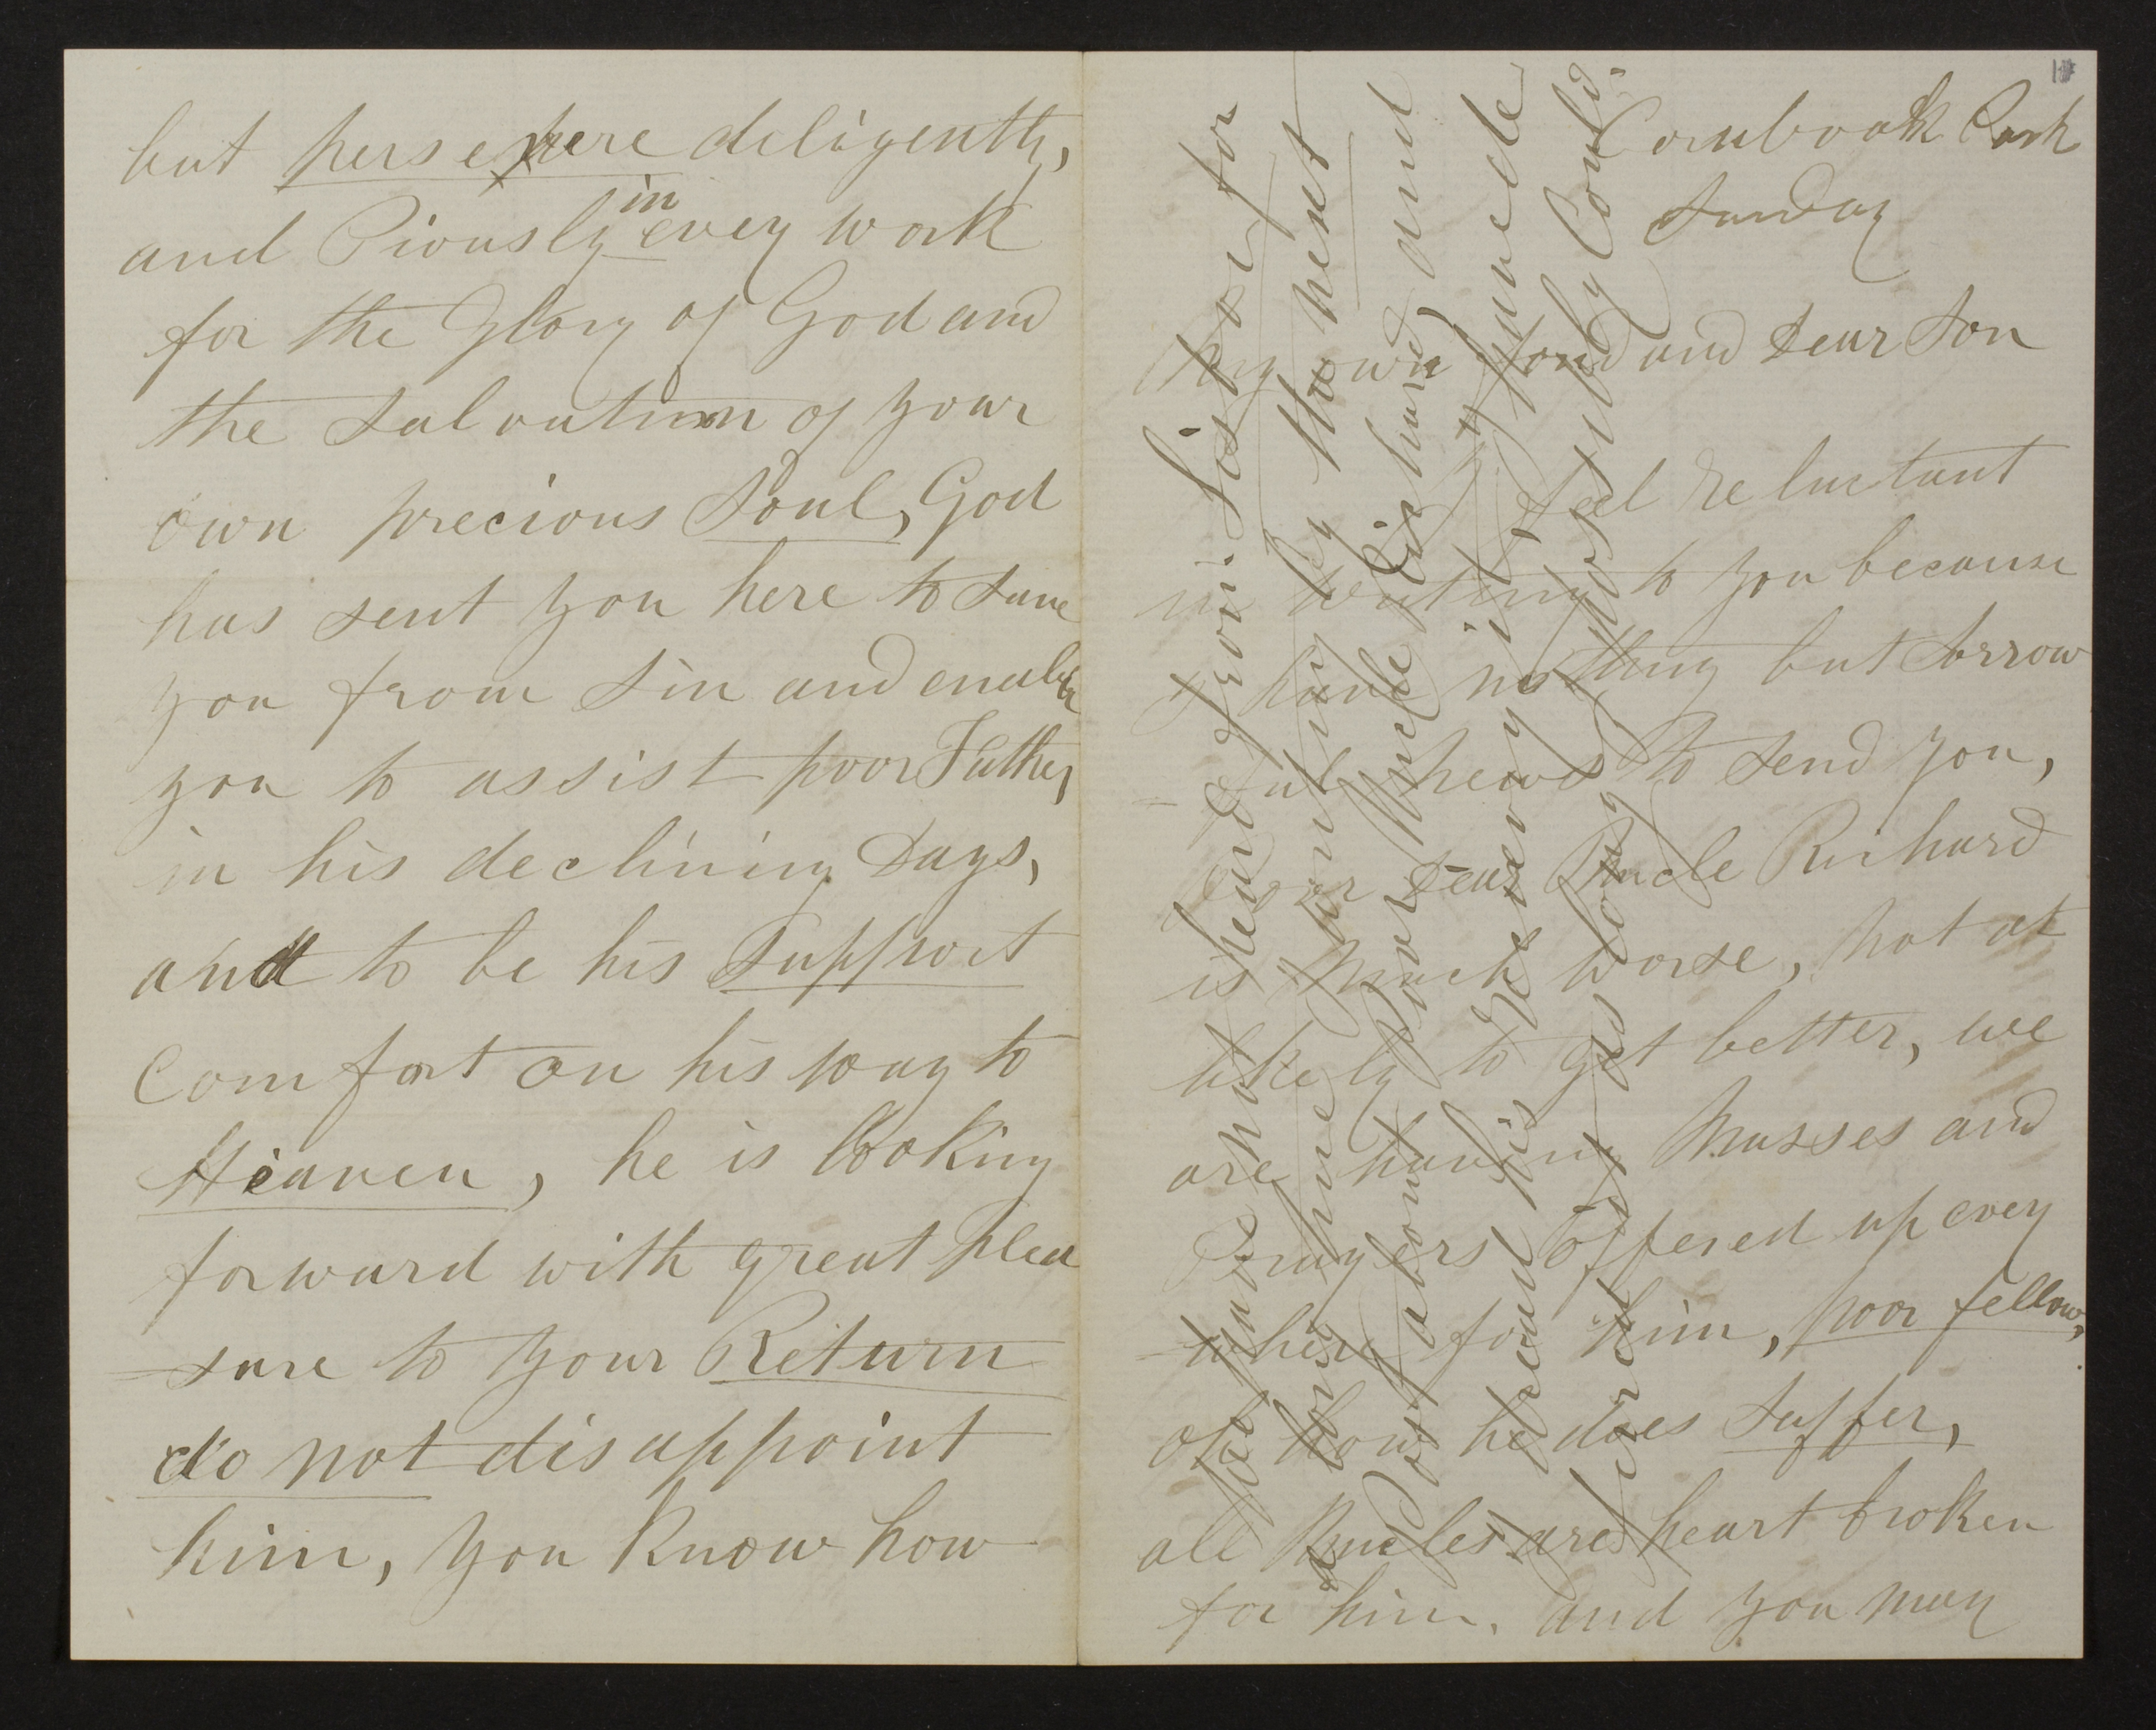 but persevere deligently,
and Piously in every work
for the Glory of God and
the Salvation of your
own precious Soul, God
has sent you here to save
you from Sin and enable
you to assist poor Father,
in his declining Days,
and to be his Support
Comfort on his way to
Heaven, he is looking
forward with great plea
-sure to your Return
do not disappoint
him, you Know how
Cornbrook Park
Sunday
My own fond and Dear Son
I feel reluctant
in writing to you because
I have nothing but Sorrow
-ful news to send you,
Poor Dear Uncle Richard
is much worse, not at
likely to get better, we
are having Masses and
Prayers Offered up every
-where for him, poor fellow,
oh how he does Suffer,
all Uncles are heart broken
for him, and you may
We have not heard from Sister for
a long time hoping by the next
Post about Poor Uncle Richard and
dread his recovery if, Juncle
fered as long as possibly Could.